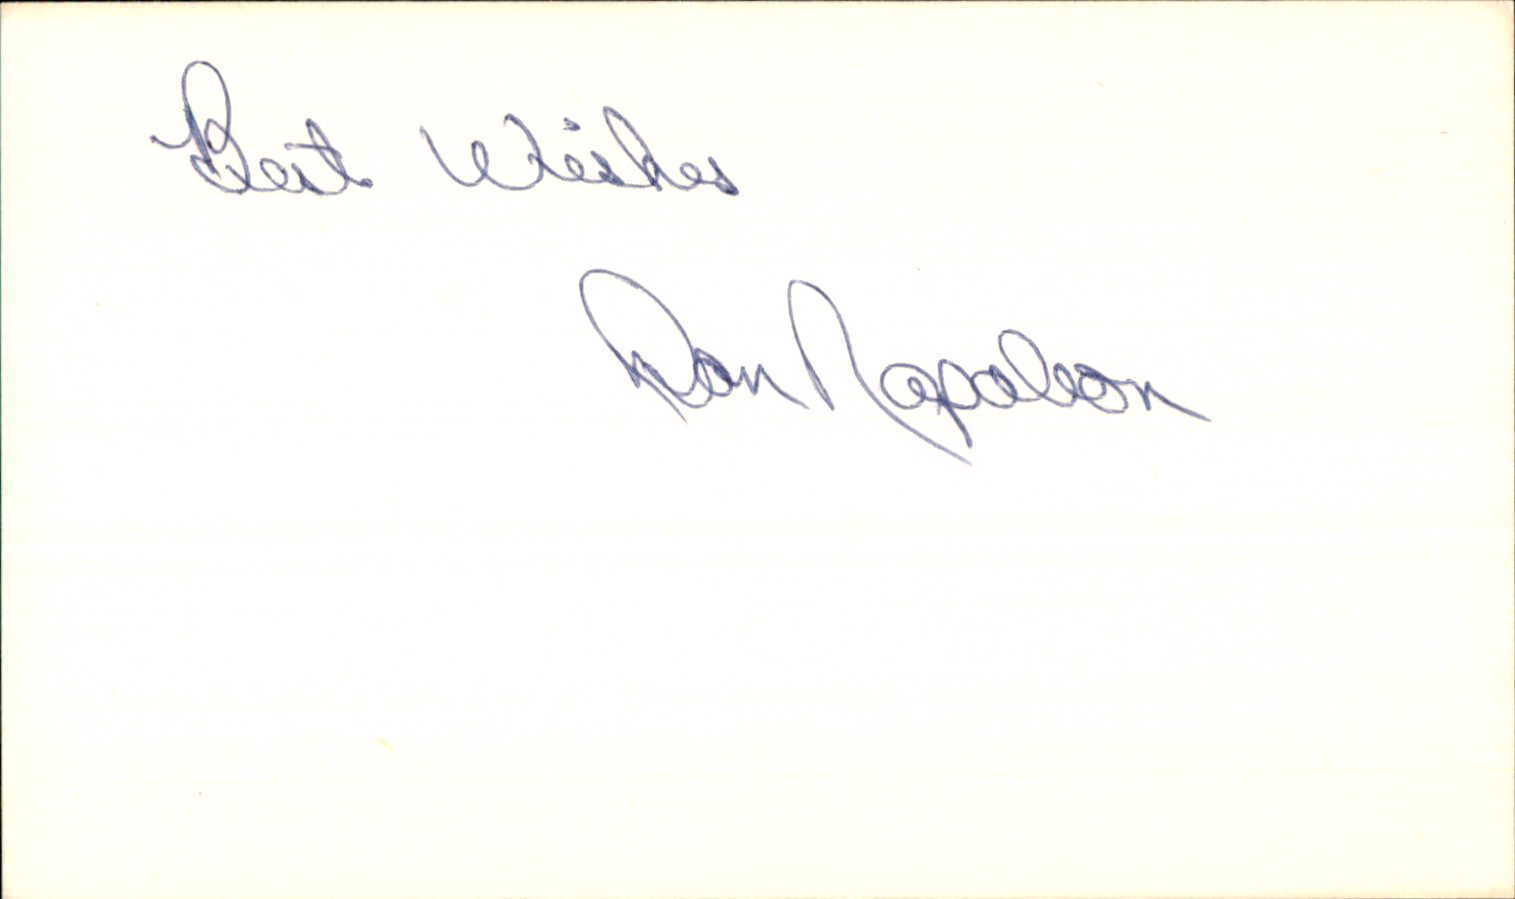 Best Wishes
Dan Napoleon